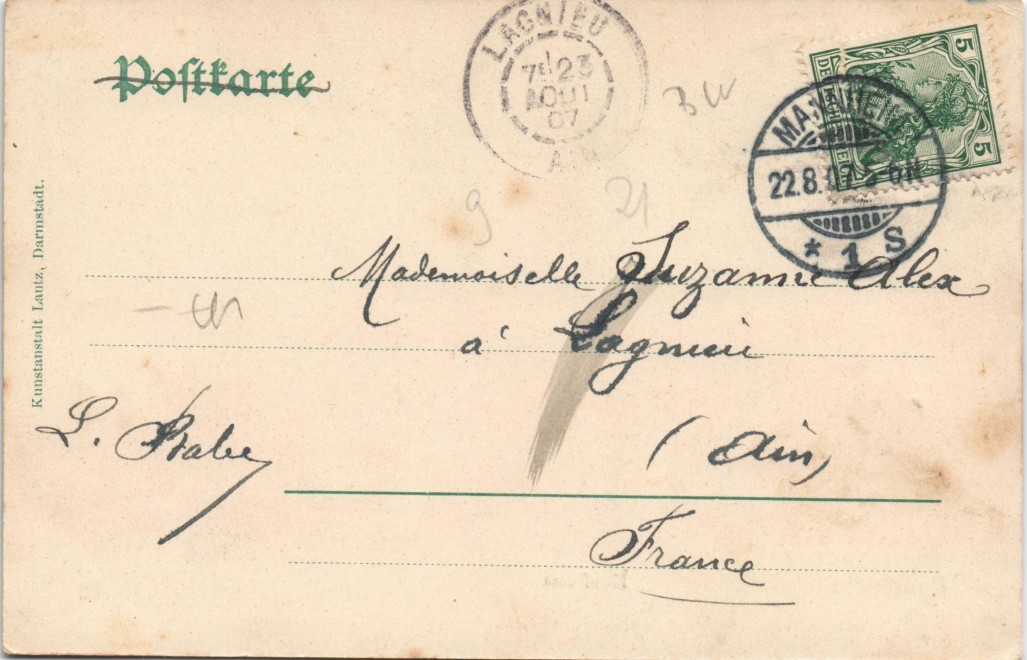 Postkarte
LAGNIEU
7E 23
AOUT
07
AIN
5
5
MANNHEIM
22.8.07 5-6N
* 1 S
BW
9
21
Mademoiselle Suzanne Alex
à Lagnieu
(Ain)
France
L. Babe
Kunstanstalt Lautz, Darmstadt.